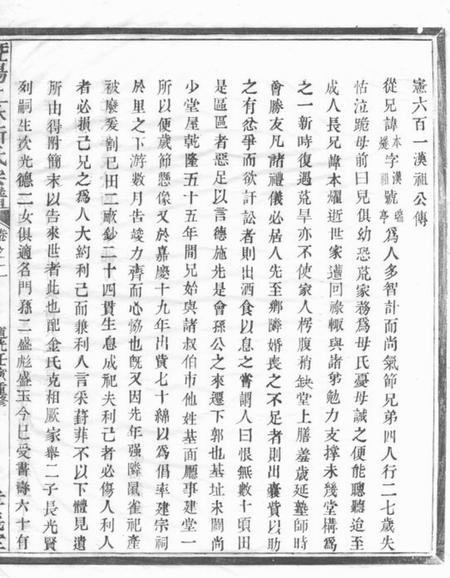 憲六百一漢祖公傳
從兄諱本燧字漢祖號瑞亭為人多智計而尚氣節兄弟四人行二七歲失
怙泣跪母前曰兄俱幼恐荒家務為母氏憂母誡之便能聽聽迨至
成人長兄諱本耀逝世家遭回祿輒與諸弟勉力支撐未幾堂構為
之一新時復遇兇旱亦不使家人楞腹稍缺堂上膳羞歲延塾師時
會勝友凡諸禮儀必居人先至鄉隣婚喪之不足者則出囊貲以助
之有忿爭而欲訐訟者則出酒食以息之嘗謂人曰恨無數十頃田
是區區者惡足以言德施先是會孫公之來遷下郭也基址未闊尚
少堂屋乾隆五十五年間兄始與諸叔伯市他姓基面廳事建堂一
所以便歲節懸像又於嘉慶十九年出貲七十緡以為倡率建宗祠
於里之下游數月告竣力齊而心恊也旣又因先年强隣鼠雀祀產
被廢爰割已田二畝鈔二十四貫生息成祀夫利己者必傷人利人
者必損己兄之為人大約利己而兼利人言采葑菲不以下體見遺
所由得附簡末以告來世者此也配金氏克相厥家舉二子長光賢
列嗣生次光德二女俱適名門孫二盛彪盛玉今已受書壽六十有
卷之二